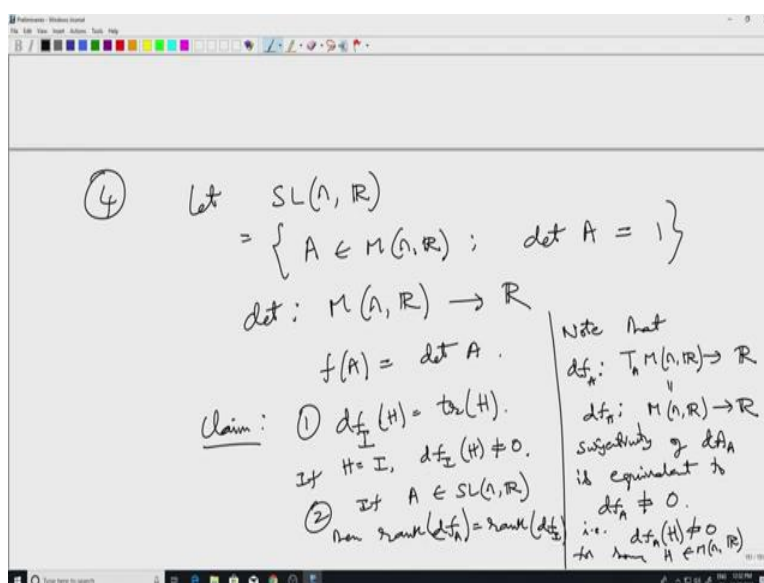 Preliminaries - Windows Journal
File Edit View Insert Actions Tools Help
④ Let SL(n, ℝ)
= { A ∈ M(n, ℝ) ; det A = 1 }
det : M(n, ℝ) → ℝ
f(A) = det A .
Claim : ① df_I (H) = tr(H) .
If H = I, df_I (H) ≠ 0 .
② If A ∈ SL(n, ℝ)
then rank(df_A) = rank(df_I)
Note that
df_A : T_A M(n, ℝ) → ℝ
"
df_A : M(n, ℝ) → ℝ
surjectivity of df_A
is equivalent to
df_A ≠ 0 .
i.e. df_A (H) ≠ 0
for some H ∈ M(n, ℝ)
Type here to search